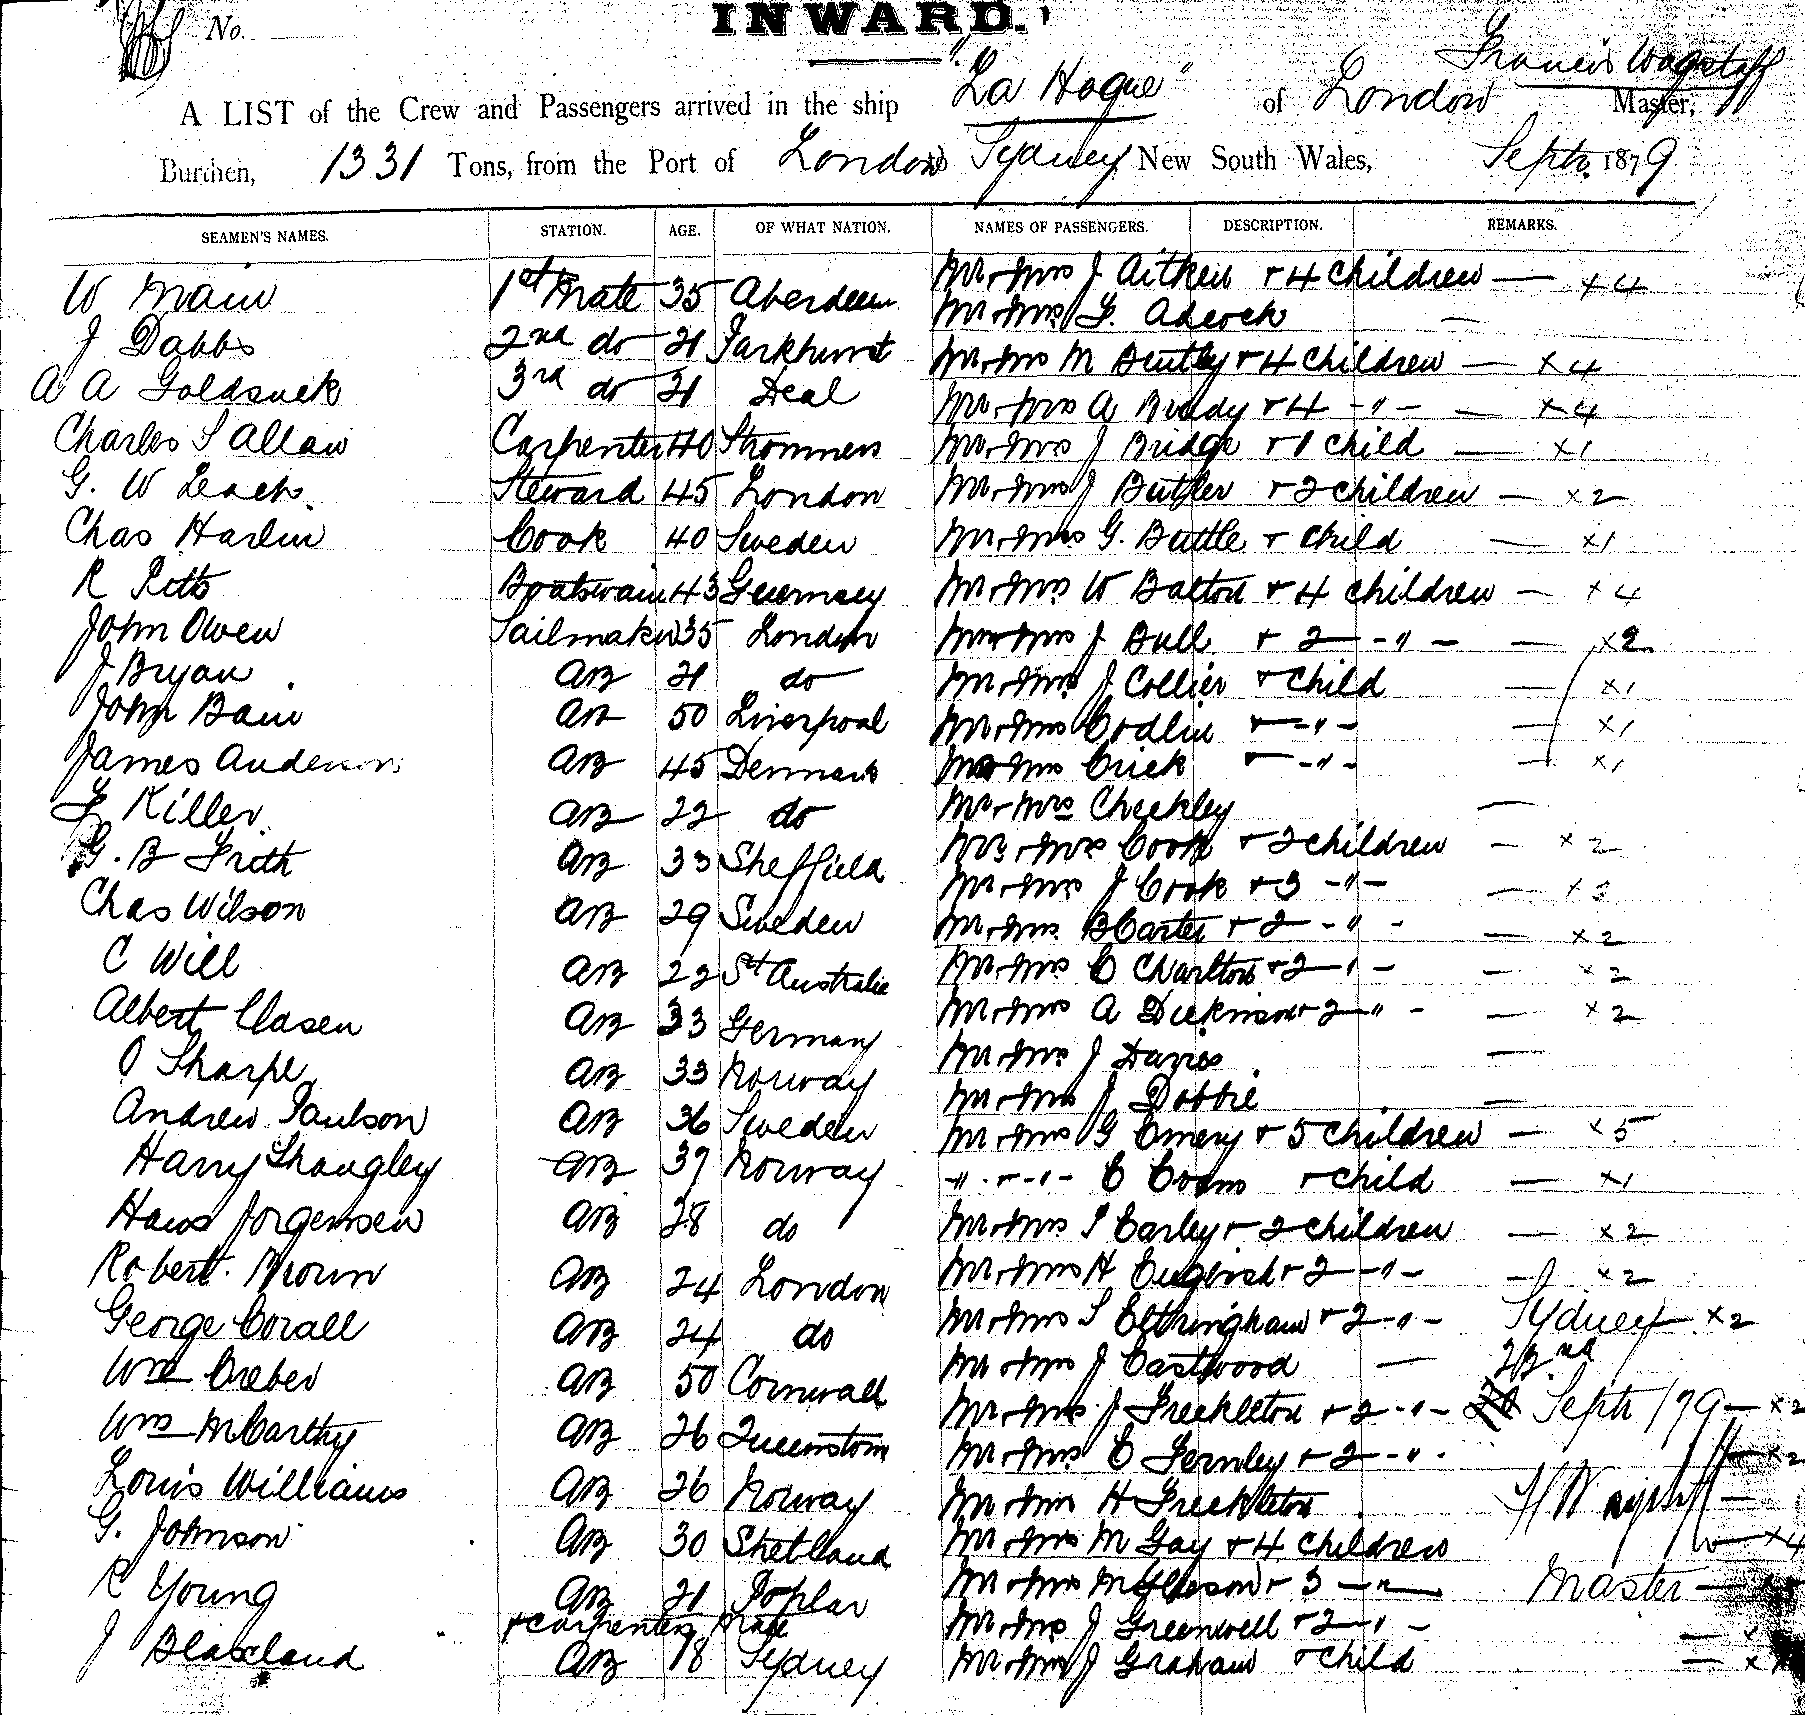 No.
INWARD.
Francis Wagstaff
A LIST of the Crew and Passengers arrived in the ship "La Hogue" of London Master,
Burthen, 1331 Tons, from the Port of London to Sydney New South Wales, Septr. 1879
SEAMEN'S NAMES. STATION. AGE. OF WHAT NATION. NAMES OF PASSENGERS. DESCRIPTION. REMARKS.
W Main 1st Mate 35 Aberdeen Mr & Mrs J Aitken & 4 children — x4
J Dabbs 2nd do 21 Parkhurst Mr & Mrs F. Adcock —
A A 3rd do 21 Deal Mr & Mrs M Bentley & 4 Children — x4
Charles S Allan Carpenter 40 Stromness Mr & Mrs A Brady & 4 -"- — x4
G. W Leach Steward 45 London Mr & Mrs J Bridge & 1 child — x1
Chas Harlin Cook 40 Sweden Mr & Mrs J Butler & 2 children — x2
R Pitts Boatswain 43 Guernsey Mr & Mrs G. Buttle & Child — x1
John Owen Sailmaker 35 London Mr & Mrs W Balton & 4 children — x4
J Bryan AB 21 do Mr & Mrs J Bull & 2 -"- — x2
John Bain AB 50 Liverpool Mr & Mrs J Collier & Child — x1
James Anderson AB 45 Denmark Mr & Mrs Codlin & -"- — x1
F Killer AB 22 do Mr & Mrs Crick & -"- — x1
G. B Frith AB 33 Sheffield Mr & Mrs Checkley —
Chas Wilson AB 29 Sweden Mr & Mrs Cook & 2 children — x2
C Will AB 22 St Australia Mr & Mrs J Cook & 3 -"- — x3
Albert Clasen AB 33 Germany Mr & Mrs B Carter & 2 -"- — x2
O Sharpe AB 33 Norway Mr & Mrs C Charlton & 2 -"- — x2
Andrew Paulson AB 36 Sweden Mr & Mrs A Dickinson & 2 -"- — x2
Harry AB 37 Norway Mr & Mrs J Davies —
Hans Jorgensen AB 28 do Mr & Mrs J Dobbie —
Robert Brown AB 24 London Mr & Mrs G Emery & 5 Children — x5
George Corall AB 24 do " & " C Evans & Child — x1
Wm Creber AB 50 Cornwall Mr & Mrs S Earley & 2 children — x2
Wm McCarthy AB 26 Queenstown Mr & Mrs H English & 2 -"- — x2
Louis Williams AB 26 Norway Mr & Mrs S Ettringham & 2 -"- Sydney x2
G. Johnson AB 30 Shetland Mr & Mrs J Eastwood — 22nd
R Young AB 21 Poplar Mr & Mrs J Freckleton & 2 -"- Septr /79 — x2
& Carpenters Mate Mr & Mrs C Fernley & 2 -"- x2
J Blaxland AB 18 Sydney Mr & Mrs H Freckleton —
Mr & Mrs M Gay & 4 children x4
Mr & Mrs M Gleeson & 3 -"- Master —
Mr & Mrs J Greenwell & 2 -"- —
Mr & Mrs J Graham & Child —